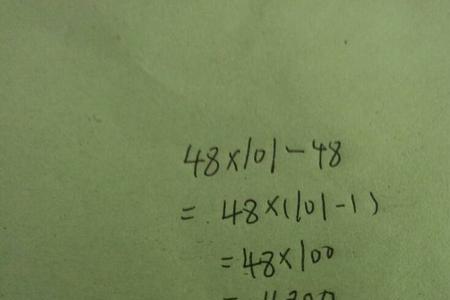 48×101-48
= 48×(101-1)
=48×100